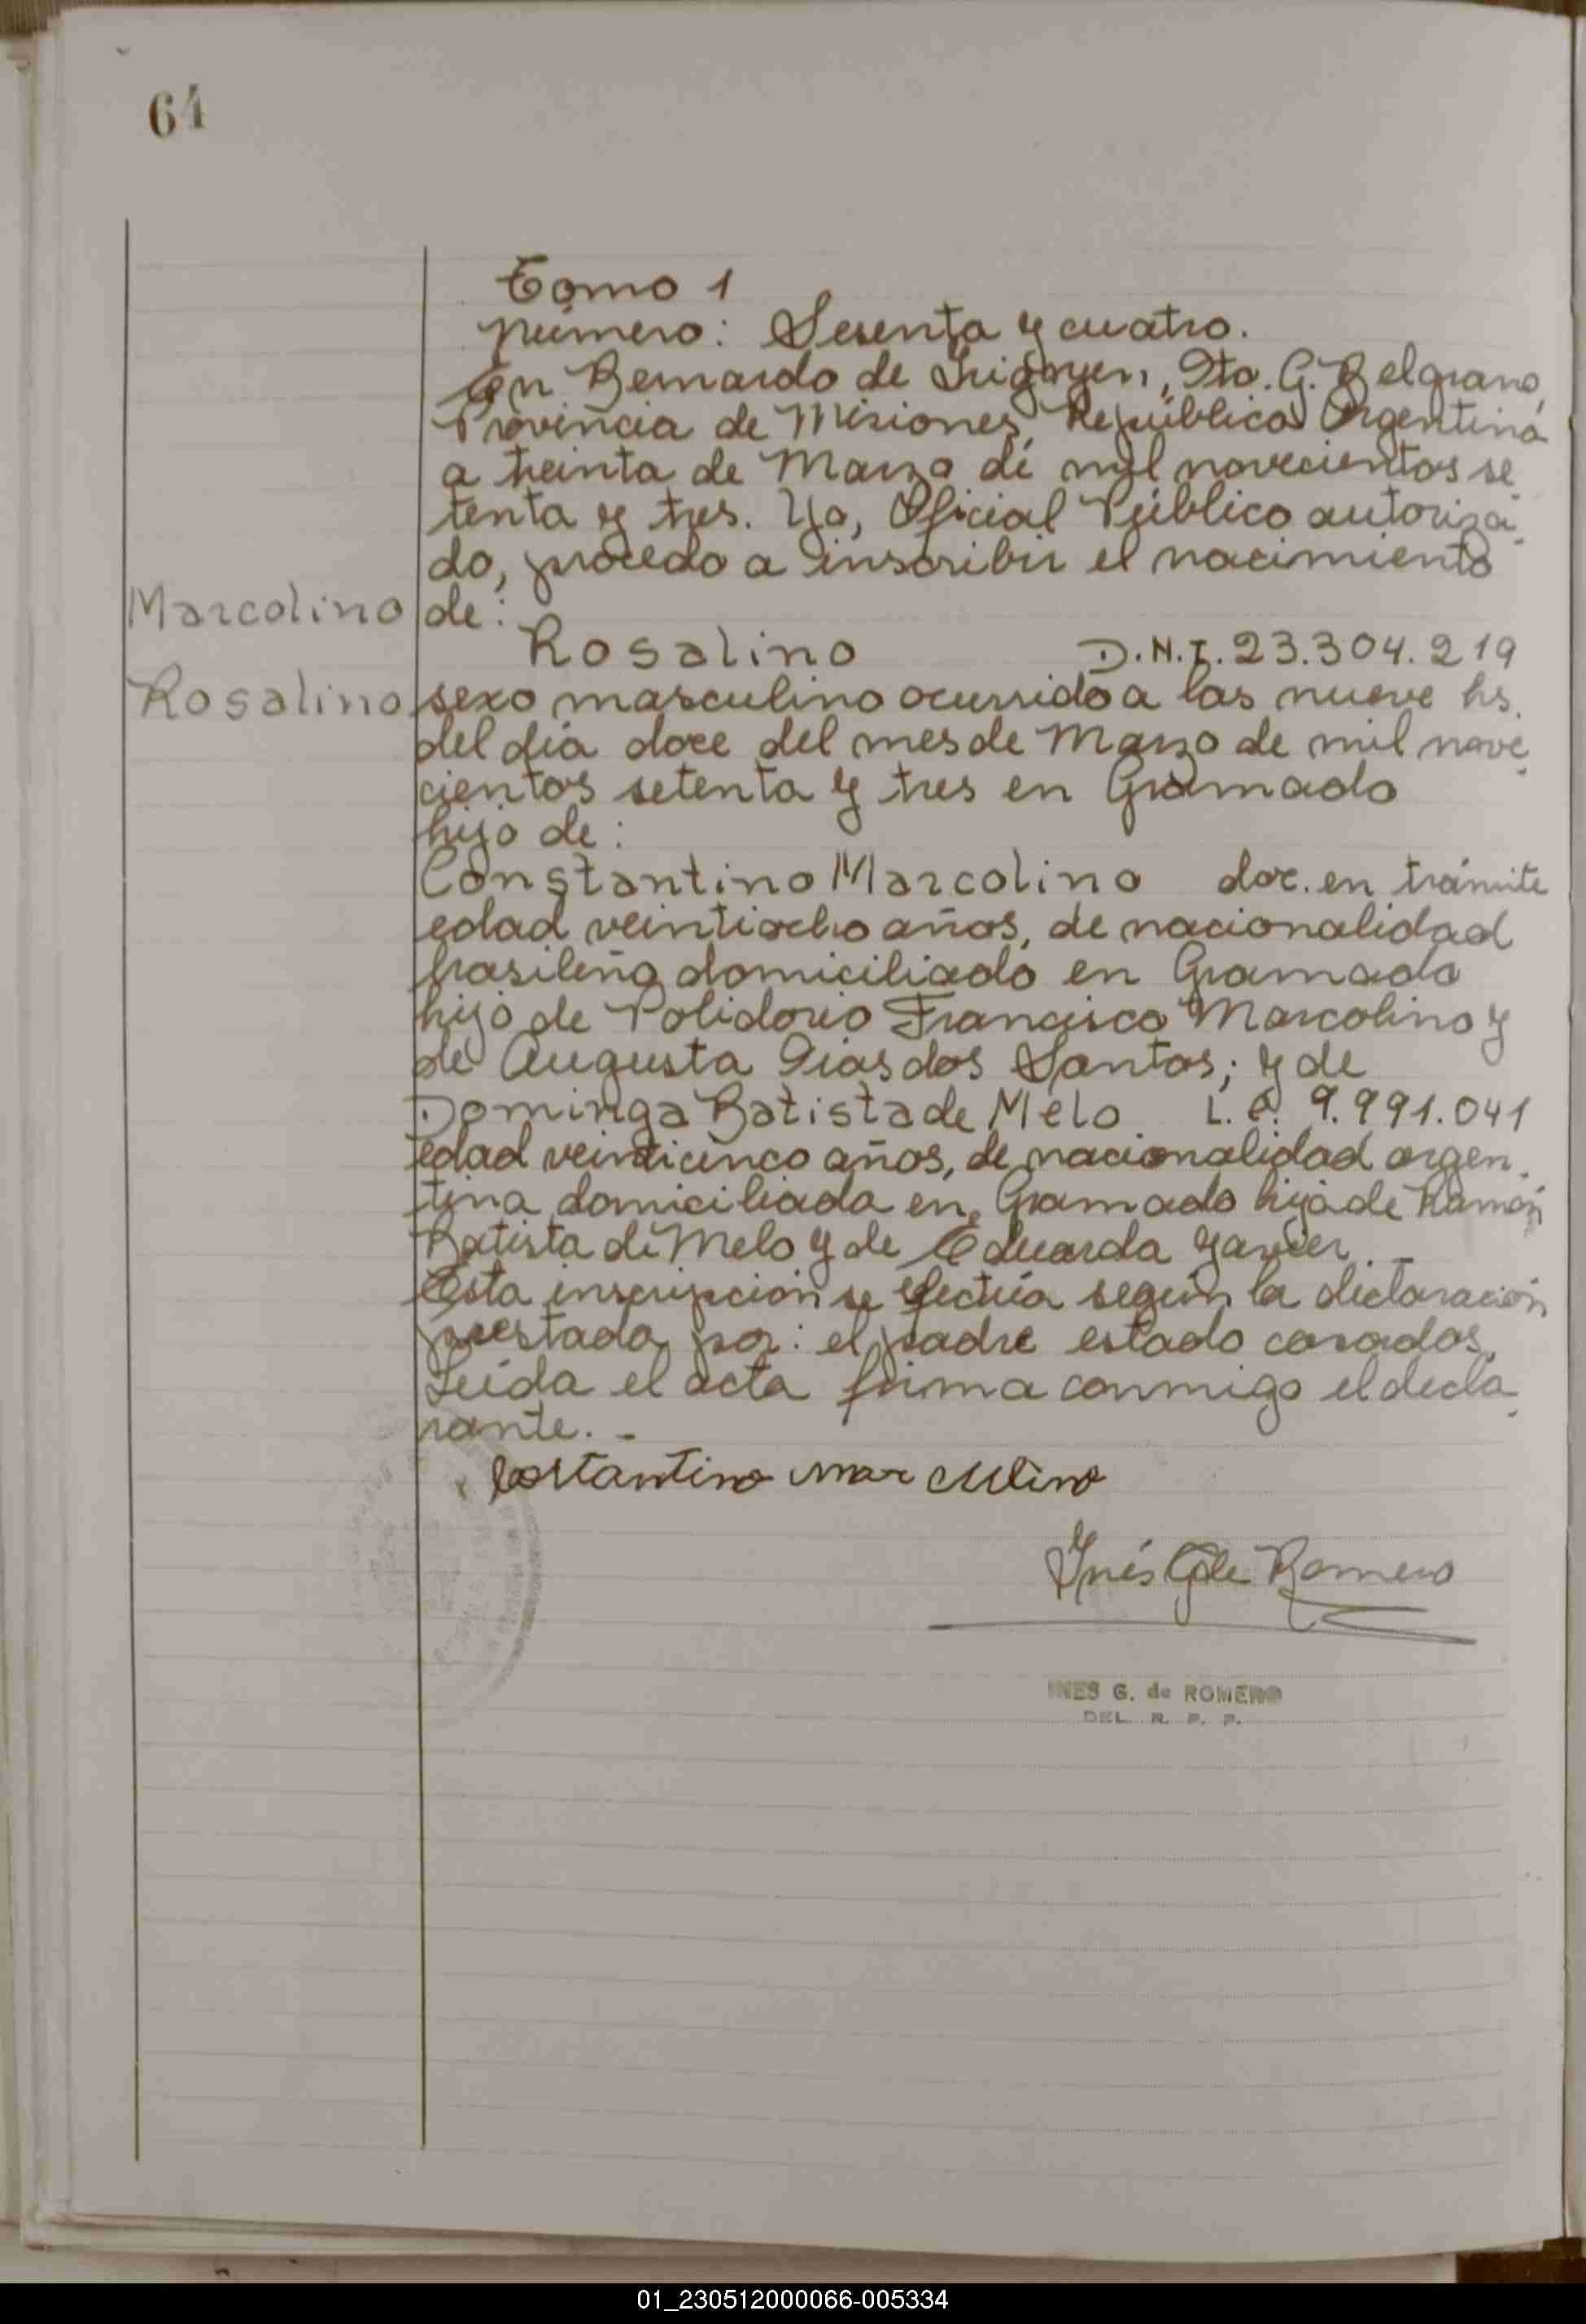 64
Tomo 1
Número: Sesenta y cuatro.
En Bernardo de Irigoyen, Dto. G. Belgrano,
Provincia de Misiones, República Argentina
a treinta de Marzo de mil novecientos se
tenta y tres. Yo, Oficial Público autoriza
do, procedo a inscribir el nacimiento
Marcolino de:
Rosalino D.N.I. 23.304.219
Rosalino sexo masculino ocurrido a las nueve hs.
del día doce del mes de Marzo de mil nove
cientos setenta y tres en Gramado
hijo de:
Constantino Marcolino doc. en trámite
edad veintiocho años, de nacionalidad
brasileña domiciliado en Gramado
hijo de Polidorio Francisco Marcolino y
de Augusta Dias dos Santos; y de
Dominga Batista de Melo L.C. 9.991.041
edad veinticinco años, de nacionalidad argen
tina domiciliada en Gramado hija de Ramón
Batista de Melo y de Eduarda Yavier.
Esta inscripción se efectúa según la declaración
prestada por: el padre estado casados.
Leída el acta firma conmigo el decla
rante. -
Costantino marcolino
Inés G de Romero
INES G. de ROMERO
DEL. R. P. P.
01_230512000066-005334